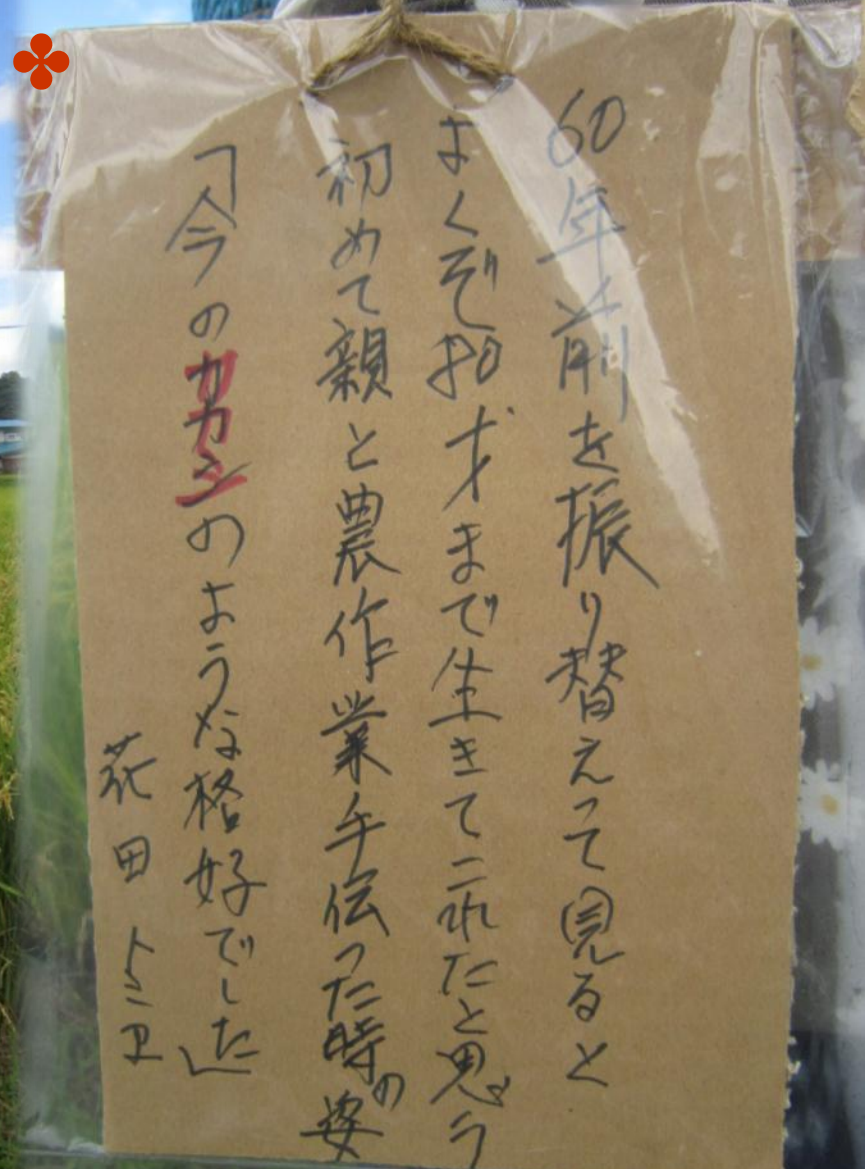 60年前を振り替えって見ると
よくぞ80才まで生きてこれたと思う
初めて親と農作業手伝った時の姿
「今のカカシのような格好でした」
花田トミエ